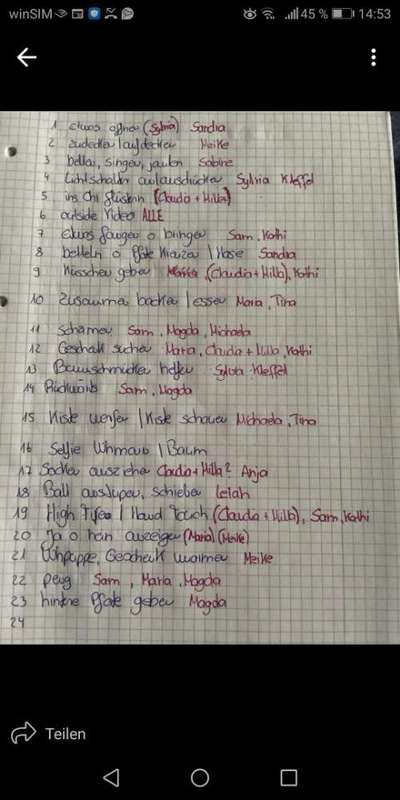 winSIM 45 % 14:53
1 etwas öffnen (Sylvia) Sandra
2 zudecken/aufdecken Meike
3 bellen, singen, jaulen Sabine
4 Lichtschalter Sylvia Kleffel
5 ins Ohr flüstern (Claudia + Hilla)
6 outside Video ALLE
7 etwas fangen o bringen Sam, Kathi
8 betteln o Pfote / Nase Sandra
9 Küsschen geben (Claudia + Hilla), Kathi
10 Zusammen backen/essen Maria, Tina
11 Schämen Sam, Magda, Michaela
12 Geschenk suchen Maria, Claudia + Hilla, Kathi
13 Baumschmücken helfen Sylvia Kleffel
14 Rückwärts Sam, Magda
15 Kiste /Kiste schauen Michaela, Tina
16 Selfie /Baum
17 Socken ausziehen Claudia + Hilla? Anja
18 Ball schieben Leiah
19 High Five / Hand Touch (Claudia + Hilla), Sam, Kathi
20 Ja o nein anzeigen (Maria) (Meike)
21 Geschenk Meike
22 Peng Sam, Maria, Magda
23 hintere Pfote geben Magda
24
Teilen